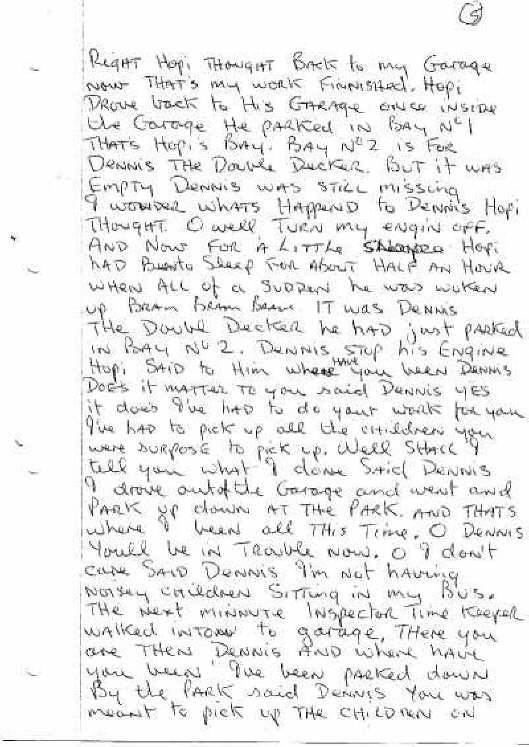 5
RIGHT HOPI THOUGHT BACK to my GARAGE
NOW THAT'S my WORK FINNISHED. HOPI
DROVE back to His GARAGE once inside
the Garage He PARKED IN BAY No 1
THATS HOPI,S BAY. BAY No 2 is FOR
DENNIS THE Double DECKER. BUT it WAS
EMPTY DENNIS WAS STILL missing
I WONDER WHATS HAPPEND to DENNIS HOPI
THOUGHT. O well TURN my ENGIN OFF.
AND NOW FOR A LITTLE HOPI
HAD to Sleep FOR ABOUT HALF AN HOUR
WHEN ALL of a SUDDEN he was woken
up BRAM BRAM BRAM. IT WAS DENNIS
THE Double DECKER he HAD just PARKED
IN BAY No 2. DENNIS STOP his ENGINE
HOPI SAID to Him where HAVE you been DENNIS
DOES it MATTER TO you said DENNIS YES
it does I've HAD to do your work for you
I've HAD to pick up all the children you
were SURPOSE to pick up. Well SHALL I
tell you what I done SAID DENNIS
I drove out of the Garage and went and
PARK up down AT THE PARK. AND THATS
where I been all THIS Time. O DENNIS
You'll be in Trouble NOW. O I don't
care SAID DENNIS I'm NOT HAVING
NOISEY children SITTING in my BUS.
THE NEXT MINNUTE INSPECTOR Time Keeper
WALKED INTOO to garage, THERE you
are THEN DENNIS AND where HAVE
you been I've been parked down
By the PARK said DENNIS You was
meant to pick up THE CHILDREN ON